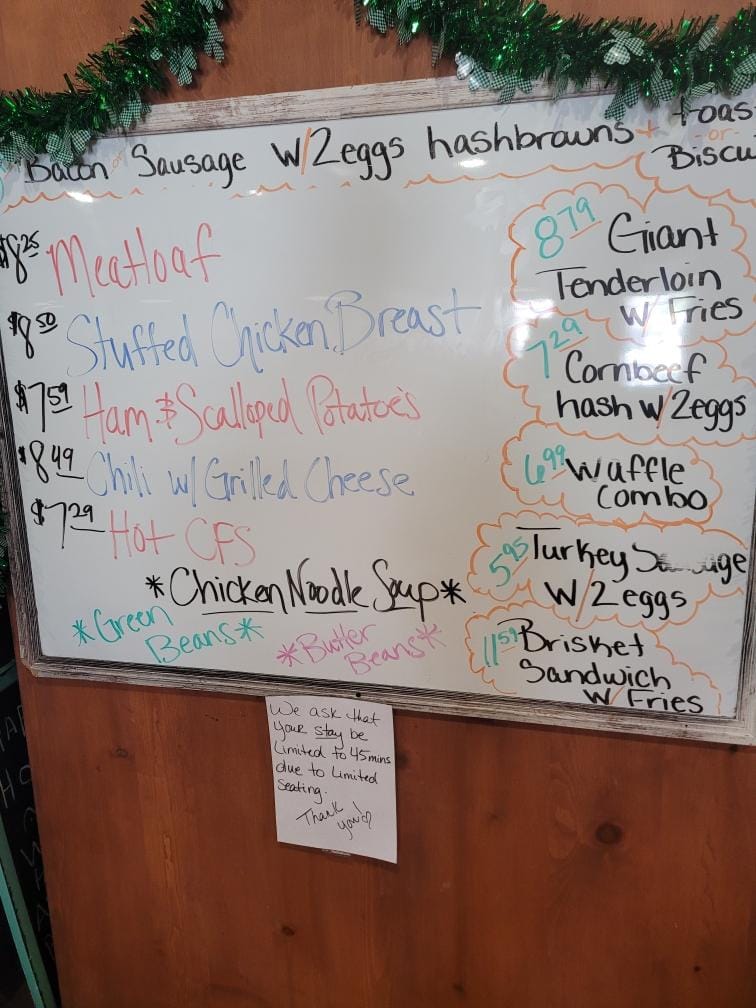 Bacon or Sausage w/2eggs hashbrowns + toas
-or-
Biscu
$8.25 Meatloaf
$8.50 Stuffed Chicken Breast
$7.59 Ham & Scalloped Potatoe's
$8.49 Chili w/ Grilled Cheese
$7.29 Hot CFS
*Chicken Noodle Soup*
*Green
Beans*
*Butter
Beans*
8.79 Giant
Tenderloin
w/ Fries
7.29 Cornbeef
hash w/2eggs
6.99 Waffle
Combo
5.95 Turkey Sausage
w/2eggs
11.59 Brisket
Sandwich
w/ Fries
We ask that
your stay be
Limited to 45mins
due to Limited
Seating.
Thank
you!